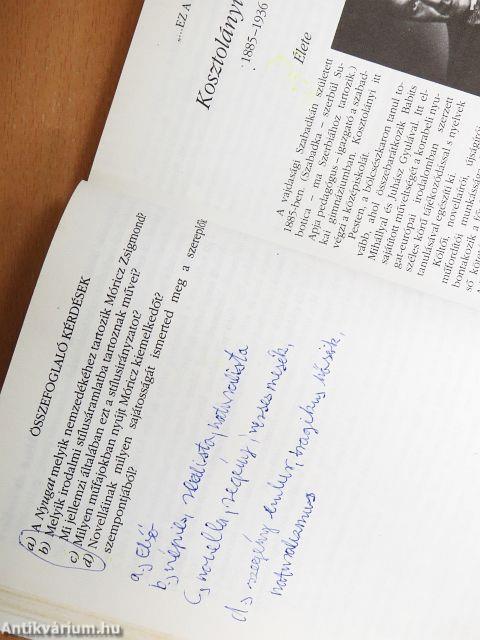 ÖSSZEFOGLALÓ KÉRDÉSEK
a) A Nyugat melyik nemzedékéhez tartozik Móricz Zsigmond?
b) Melyik irodalmi stílusáramlatba tartoznak művei?
Mi jellemzi általában ezt a stílusirányzatot?
c) Milyen műfajokban nyújt Móricz kiemelkedőt?
d) Novelláinak milyen sajátosságát ismerted meg a szereplők
szempontjából?
a.) Első
b.) népies, realista, naturalista
c) novella, regény, verses mesék,
d) szegény ember, tragikus
naturalizmus
„...EZ A
Kosztolányi
1885–1936
Élete
A vajdasági Szabadkán született
1885-ben. (Szabadka – szerbül Su-
botica – ma Szerbiához tartozik.)
Apja pedagógus – igazgató a szabad-
kai gimnáziumban, Kosztolányi itt
végzi a középiskolát.
Pesten, a bölcsészkaron tanul to-
vább, ahol összebarátkozik Babits
Mihállyal és Juhász Gyulával. Itt el-
sajátított műveltségét a korabeli nyu-
gat-európai irodalomban szerzett
széles körű tájékozódással s nyelvek
tanulásával egészíti ki.
Költői, novellaírói, újságírói,
műfordítói munkássága
bontakozik a
Antikvárium.hu